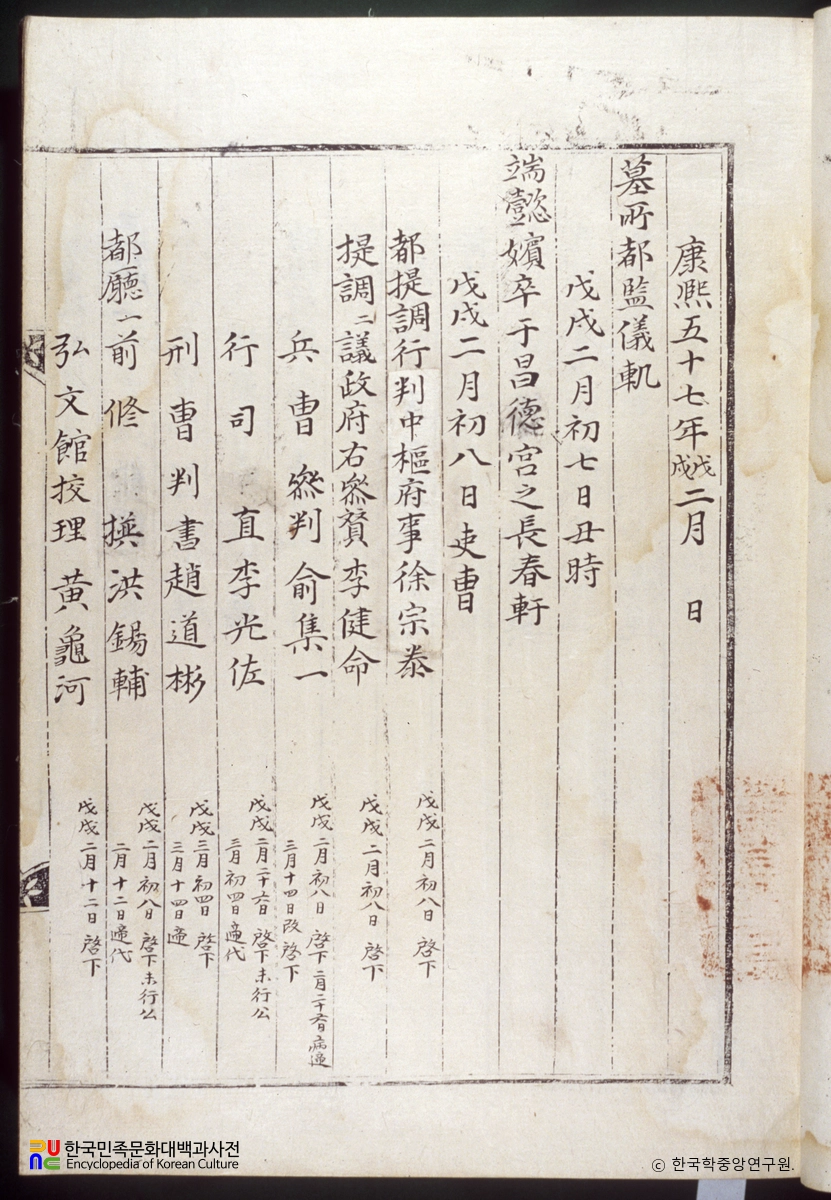 康熙五十七年戊戌二月 日
墓所都監儀軌
戊戌二月初七日丑時
端懿嬪卒于昌德宮之長春軒
戊戌二月初八日吏曹
都提調行判中樞府事徐宗泰 戊戌二月初八日 啓下
提調二議政府右參贊李健命 戊戌二月初八日 啓下
兵曹參判俞集一 戊戌二月初八日 啓下二月二十六日病遞 三月十四日改啓下
行司 直李光佐 戊戌二月二十六日 啓下未行公 三月初四日遞代
刑曹判書趙道彬 戊戌三月初四日 啓下 三月十四日遞
都廳一前修 撰洪錫輔 戊戌二月初八日 啓下未行公 二月十二日遞代
弘文館校理黃龜河 戊戌二月十二日 啓下
한국민족문화대백과사전
Encyclopedia of Korean Culture
© 한국학중앙연구원.